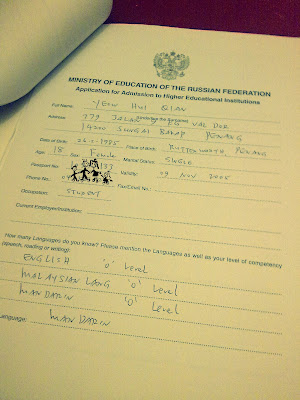 MINISTRY OF EDUCATION OF THE RUSSIAN FEDERATION
Application for Admission to Higher Educational Institutions
Full Name: YEOW HUI QIAN
(Underline the surname)
Address: 779 JALAN VAL DOR
14200 SUNGAI BAKAP PENANG
Date of Birth: 26-2-1985 Place of Birth: BUTTERWORTH, PENANG
Age: 18 Sex: Female Marital Status: SINGLE
Passport No: 137 Validity: 29 NOV 2005
Phone No.: Fax/Email No.:
Occupation: STUDENT
Current Employer/Institution:
How many Languages do you know? Please mention the Languages as well as your level of competency
(speech, reading or writing):
ENGLISH 'O' Level
MALAYSIAN LANG 'O' Level
MANDARIN 'O' Level
Language: MANDARIN